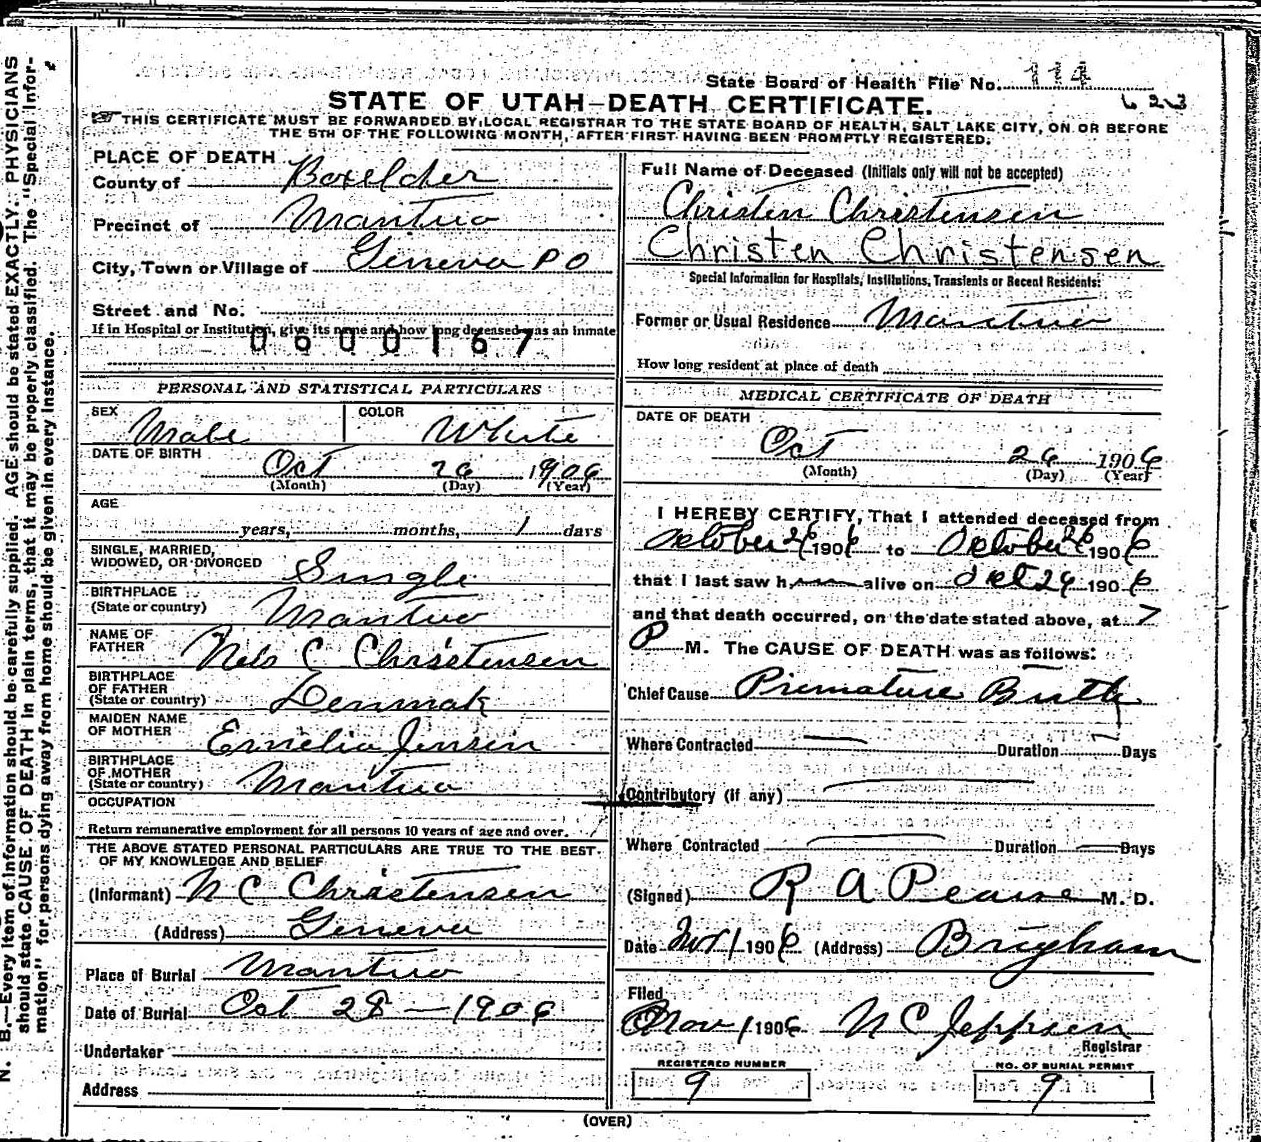 State Board of Health File No. 114
623
STATE OF UTAH—DEATH CERTIFICATE.
THIS CERTIFICATE MUST BE FORWARDED BY LOCAL REGISTRAR TO THE STATE BOARD OF HEALTH, SALT LAKE CITY, ON OR BEFORE
THE 5TH OF THE FOLLOWING MONTH, AFTER FIRST HAVING BEEN PROMPTLY REGISTERED.
PLACE OF DEATH
County of Boxelder
Precinct of Mantua
City, Town or Village of Geneva P O
Street and No.
If in Hospital or Institution, give its name and how long deceased was an inmate
0600167
PERSONAL AND STATISTICAL PARTICULARS
SEX Male COLOR White
DATE OF BIRTH Oct 26 1906
(Month) (Day) (Year)
AGE
years, months, 1 days
SINGLE, MARRIED,
WIDOWED, OR DIVORCED Single
BIRTHPLACE
(State or country) Mantua
NAME OF
FATHER Nels C Christensen
BIRTHPLACE
OF FATHER
(State or country) Denmak
MAIDEN NAME
OF MOTHER Emelia Jensen
BIRTHPLACE
OF MOTHER
(State or country) Mantua
OCCUPATION
Return remunerative employment for all persons 10 years of age and over.
THE ABOVE STATED PERSONAL PARTICULARS ARE TRUE TO THE BEST
OF MY KNOWLEDGE AND BELIEF
(Informant) N C Christensen
(Address) Geneva
Place of Burial Mantua
Date of Burial Oct 28 — 1906
Undertaker
Address
Full Name of Deceased (Initials only will not be accepted)
Christen Christensen
Christen Christensen
Special Information for Hospitals, Institutions, Transients or Recent Residents:
Former or Usual Residence Mantua
How long resident at place of death
MEDICAL CERTIFICATE OF DEATH
DATE OF DEATH
Oct 26 1906
(Month) (Day) (Year)
I HEREBY CERTIFY, That I attended deceased from
October 26 1906 to October 26 1906
that I last saw h alive on Oct 26 1906
and that death occurred, on the date stated above, at 7
P M. The CAUSE OF DEATH was as follows:
Chief Cause Premature Birth
Where Contracted — Duration — Days
Contributory (if any)
Where Contracted Duration Days
(Signed) R A Pearse M. D.
Date Nov 1 1906 (Address) Brigham
Filed
Nov 1 1906 N C Jeppsen
Registrar
REGISTERED NUMBER
9
NO. OF BURIAL PERMIT
9
(OVER)
N. B.—Every item of information should be carefully supplied. AGE should be stated EXACTLY. PHYSICIANS
should state CAUSE OF DEATH in plain terms, that it may be properly classified. The "Special Infor-
mation" for persons dying away from home should be given in every instance.